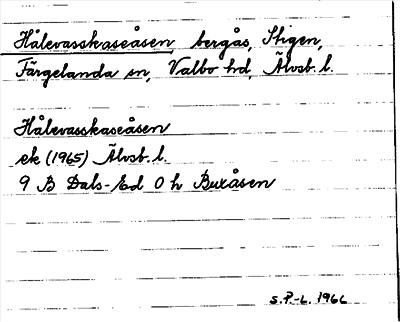 Hålevasskaseåsen bergås, Stigen,
Färgelanda sn, Valbo hd, Älvsb. l.
Hålevasskaseåsen
ek (1965) Älvsb. l.
9 B Dals-Ed 0 h Buxåsen
S.P.-L. 1966